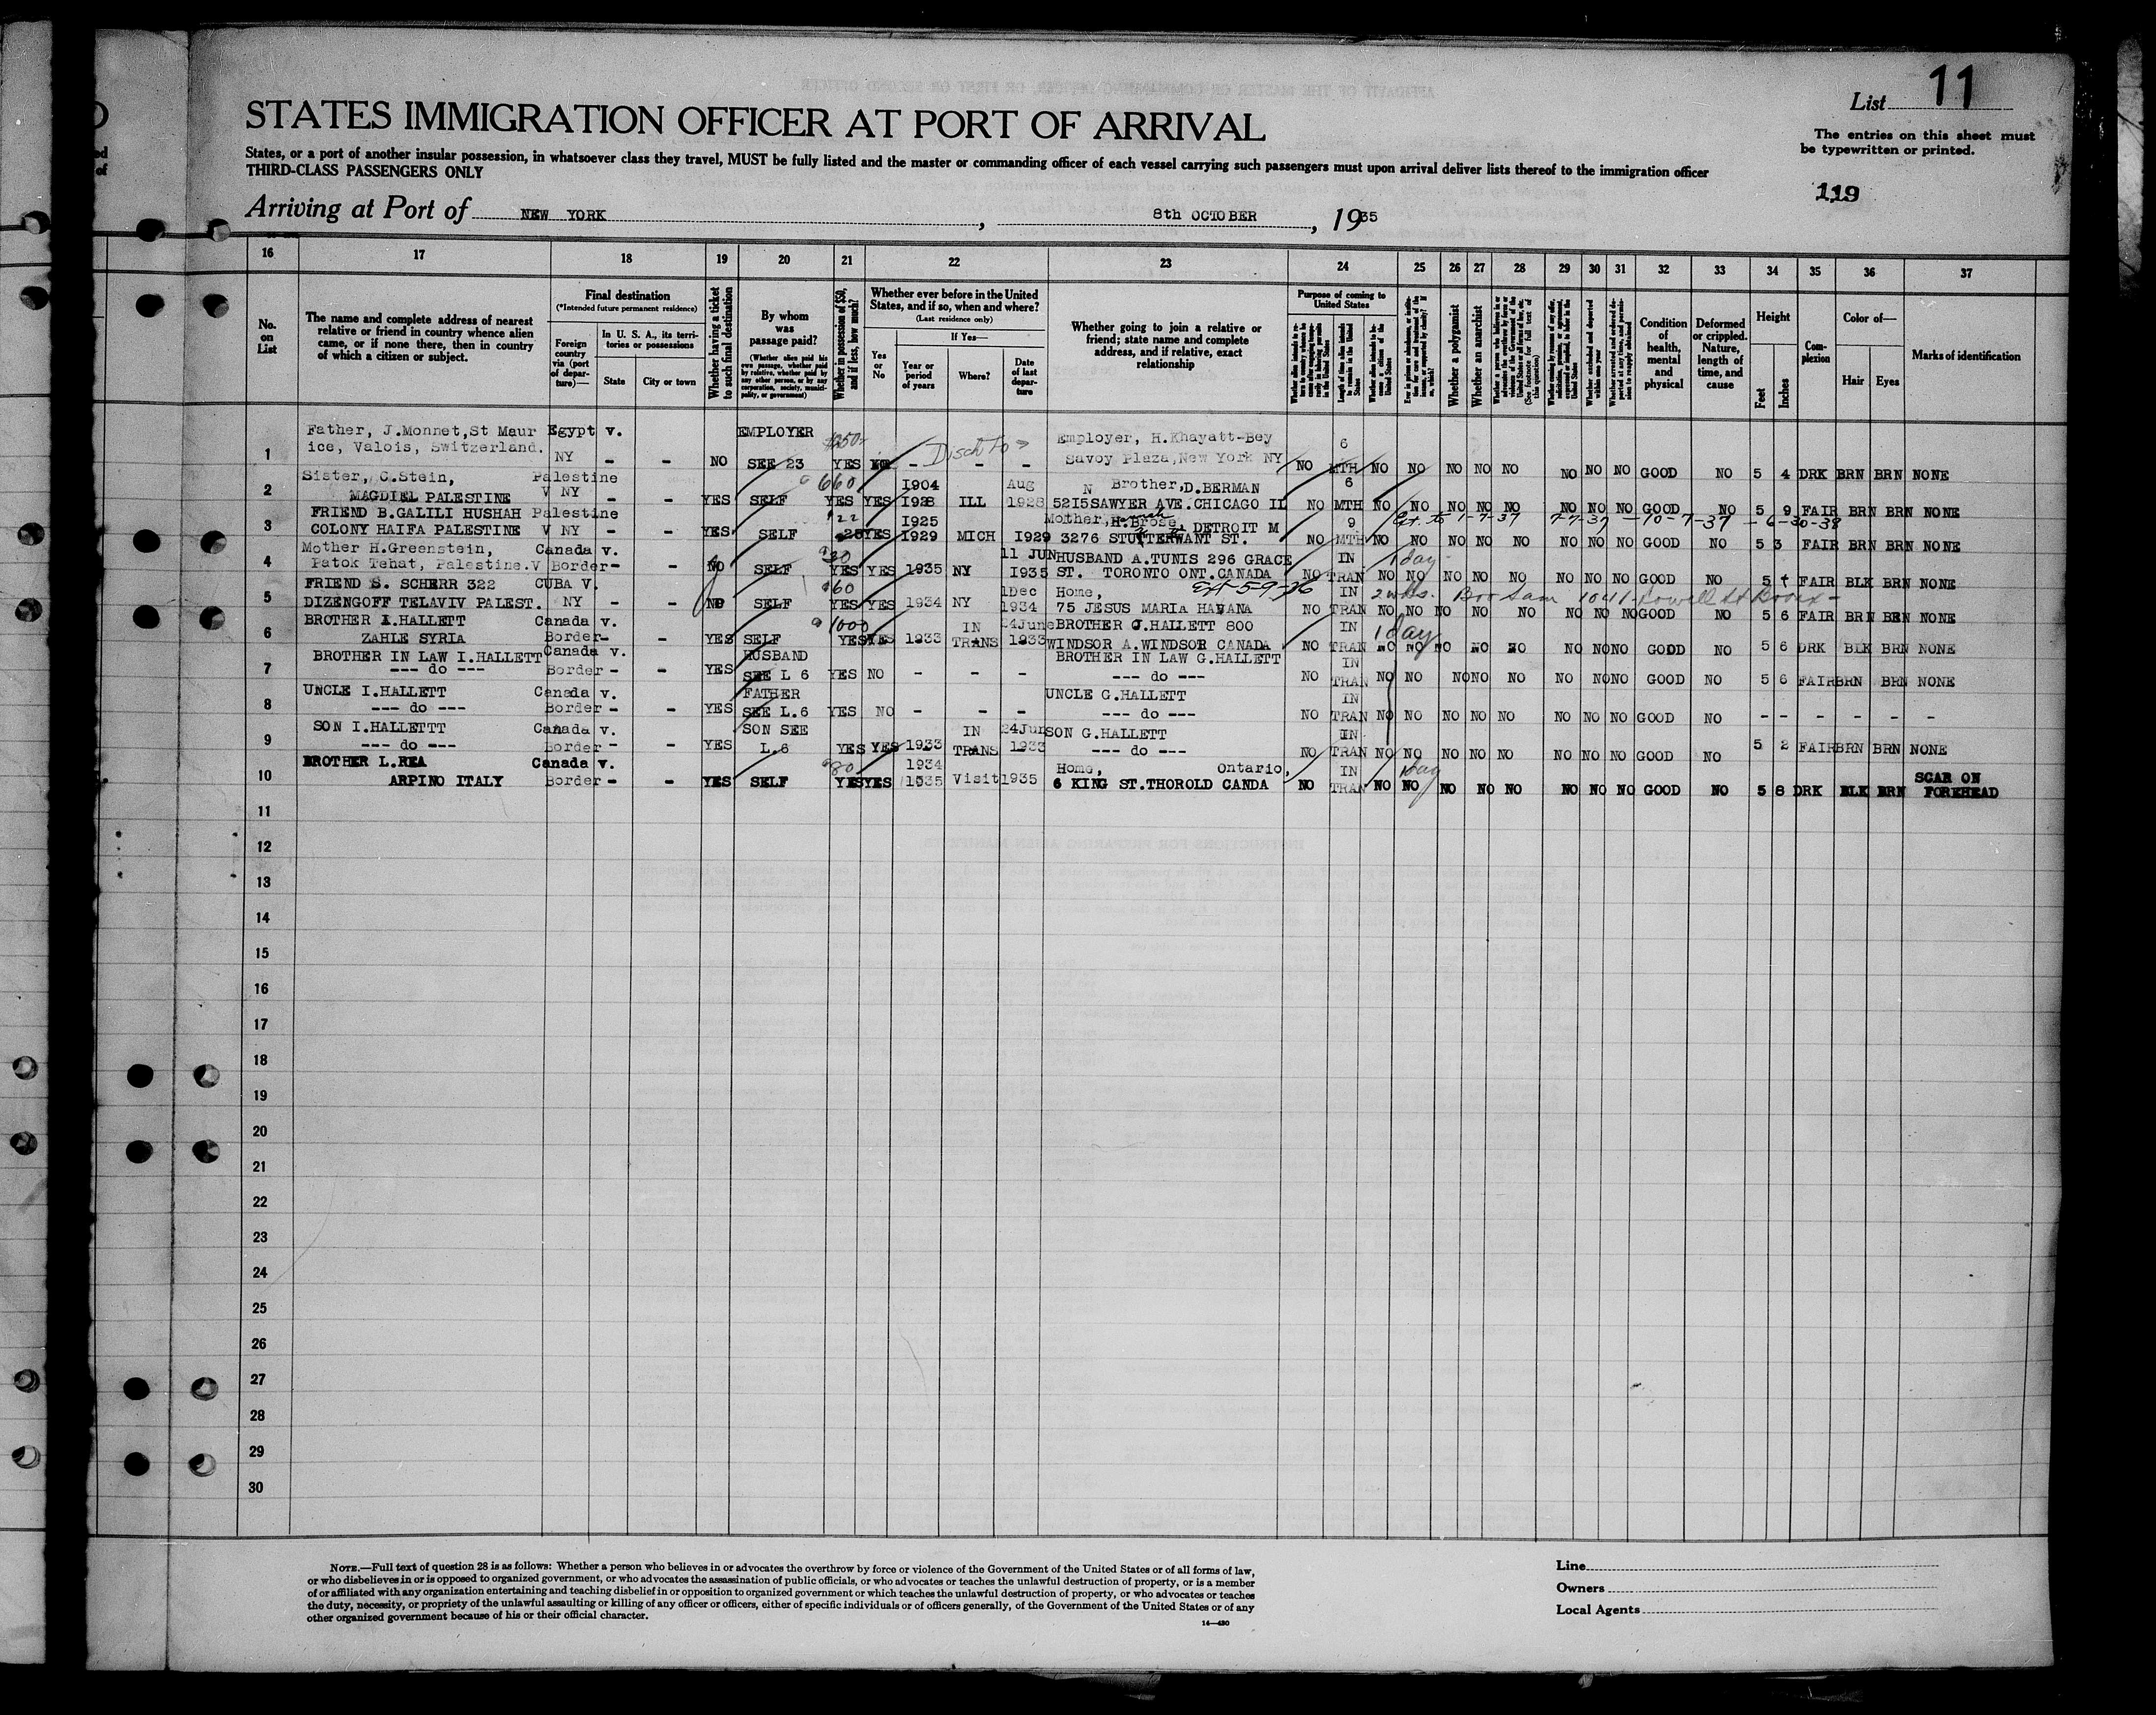 List 11
STATES IMMIGRATION OFFICER AT PORT OF ARRIVAL
The entries on this sheet must
be typewritten or printed.
States, or a port of another insular possession, in whatsoever class they travel, MUST be fully listed and the master or commanding officer of each vessel carrying such passengers must upon arrival deliver lists thereof to the immigration officer
THIRD-CLASS PASSENGERS ONLY
119
Arriving at Port of NEW YORK, 8th OCTOBER, 1935
16 17 18 19 20 21 22 23 24 25 26 27 28 29 30 31 32 33 34 35 36 37
No. on List
The name and complete address of nearest relative or friend in country whence alien came, or if none there, then in country of which a citizen or subject.
Final destination
(*Intended future permanent residence)
Foreign country via (port of departure)—
In U. S. A., its territories or possessions
State
City or town
Whether having a ticket to such final destination
By whom was passage paid?
(Whether alien paid his own passage, whether paid by relative, whether paid by any other person, or by any corporation, society, municipality, or government)
Whether in possession of $50, and if less, how much?
Whether ever before in the United States, and if so, when and where?
(Last residence only)
Yes or No
If Yes—
Year or period of years
Where?
Date of last departure
Whether going to join a relative or friend; state name and complete address, and if relative, exact relationship
Purpose of coming to United States
Length of time alien intends to remain in the United States
Whether alien intends to become a citizen of the United States
Whether a polygamist
Whether an anarchist
Condition of health, mental and physical
Deformed or crippled. Nature, length of time, and cause
Height
Feet
Inches
Complexion
Color of—
Hair
Eyes
Marks of identification
Father, J.Monnet,St Maur Egypt v. EMPLOYER Employer, H.Khayatt-Bey 6
1 ice, Valois, Switzerland. NY - - NO SEE 23 YES - - - Savoy Plaza,New York NY NO MTH NO NO NO NO NO NO NO NO GOOD NO 5 4 DRK BRN BRN NONE
Sister, C.Stein, Palestine 660 1904 Aug N Brother,D.BERMAN 6
2 MAGDIEL PALESTINE V NY - - YES SELF YES YES 1928 ILL 1928 5215SAWYER AVE.CHICAGO IL NO MTH NO NO NO NO NO NO NO NO GOOD NO 5 9 FAIR BRN BRN NONE
FRIEND B.GALILI HUSHAH Palestine 22 1925 Mother, H.Brose, DETROIT M 9 Ext. to 1-7-37 7-7-37 -10-7-37 -6-30-38
3 COLONY HAIFA PALESTINE V NY - - YES SELF YES 1929 MICH 1929 3276 ST. NO MTH NO NO NO NO NO NO NO NO GOOD NO 5 3 FAIR BRN BRN NONE
Mother H.Greenstein, Canada v. 11 JUN HUSBAND A.TUNIS 296 GRACE IN 1 day
4 Patok Tehat, Palestine.V Border- - NO SELF YES YES 1935 NY 1935 ST. TORONTO ONT.CANADA NO TRAN NO NO NO NO NO NO NO NO GOOD NO 5 FAIR BLK BRN NONE
FRIEND S. SCHERR 322 CUBA V. 60 1Dec Home, Ext 5-9-36 IN 2 wks. Bro Sam 1041
5 DIZENGOFF TELAVIV PALEST. NY - - NO SELF YES YES 1934 NY 1934 75 JESUS MARIA HAVANA NO TRAN NO NO NO NO NO NO NO NO GOOD NO 5 6 FAIR BRN BRN NONE
BROTHER I.HALLETT Canada v. 1000 IN 24June BROTHER G.HALLETT 800 IN 1 day
6 ZAHLE SYRIA Border- - YES SELF YES YES 1933 TRANS 1933 WINDSOR A.WINDSOR CANADA NO TRAN NO NO NO NO NO NO NO NO GOOD NO 5 6 DRK BLK BRN NONE
BROTHER IN LAW I.HALLETT Canada v. HUSBAND BROTHER IN LAW G.HALLETT IN
7 --- do --- Border- - YES SEE L 6 YES NO - - - --- do --- NO TRAN NO NO NO NO NO NO NO NO GOOD NO 5 6 FAIR BRN BRN NONE
UNCLE I.HALLETT Canada v. FATHER UNCLE G.HALLETT IN
8 --- do --- Border- - YES SEE L.6 YES NO - - - --- do --- NO TRAN NO NO NO NO NO NO NO NO GOOD NO - - - - - -
SON I.HALLETTT Canada v. SON SEE IN 24Jun SON G.HALLETT IN
9 --- do --- Border- - YES L.6 YES YES 1933 TRANS 1933 --- do --- NO TRAN NO NO NO NO NO NO NO NO GOOD NO 5 2 FAIR BRN BRN NONE
BROTHER L.REA Canada v. 80 1934 Home, Ontario, IN 1 day SCAR ON
10 ARPINO ITALY Border- - YES SELF YES YES 1935 Visit 1935 6 KING ST.THOROLD CANDA NO TRAN NO NO NO NO NO NO NO NO GOOD NO 5 8 DRK BLK BRN FOREHEAD
11
12
13
14
15
16
17
18
19
20
21
22
23
24
25
26
27
28
29
30
NOTE.—Full text of question 28 is as follows: Whether a person who believes in or advocates the overthrow by force or violence of the Government of the United States or of all forms of law,
or who disbelieves in or is opposed to organized government, or who advocates the assassination of public officials, or who advocates or teaches the unlawful destruction of property, or is a member
of or affiliated with any organization entertaining and teaching disbelief in or opposition to organized government or which teaches the unlawful destruction of property, or who advocates or teaches
the duty, necessity, or propriety of the unlawful assaulting or killing of any officer or officers, either of specific individuals or of officers generally, of the Government of the United States or of any
other organized government because of his or their official character.
14—430
Line
Owners
Local Agents